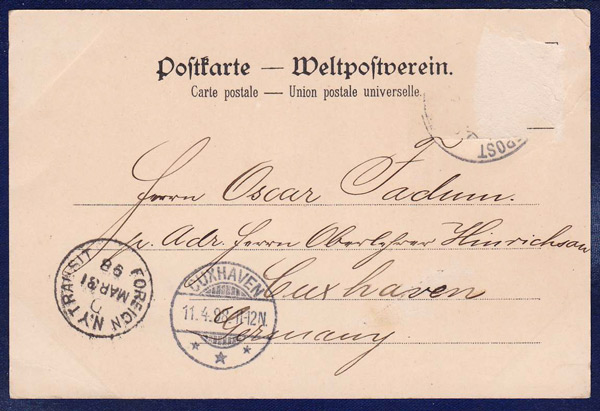 Postkarte — Weltpostverein.
Carte postale — Union postale universelle.
POST
Herrn Oscar Fadum.
p. Adr. Herrn Oberlehrer Hinrichsen
Cuxhaven
Germany.
FOREIGN N.Y TRANSIT
D
MAR 31
98
CUXHAVEN
11.4.98.11-12N
* * *